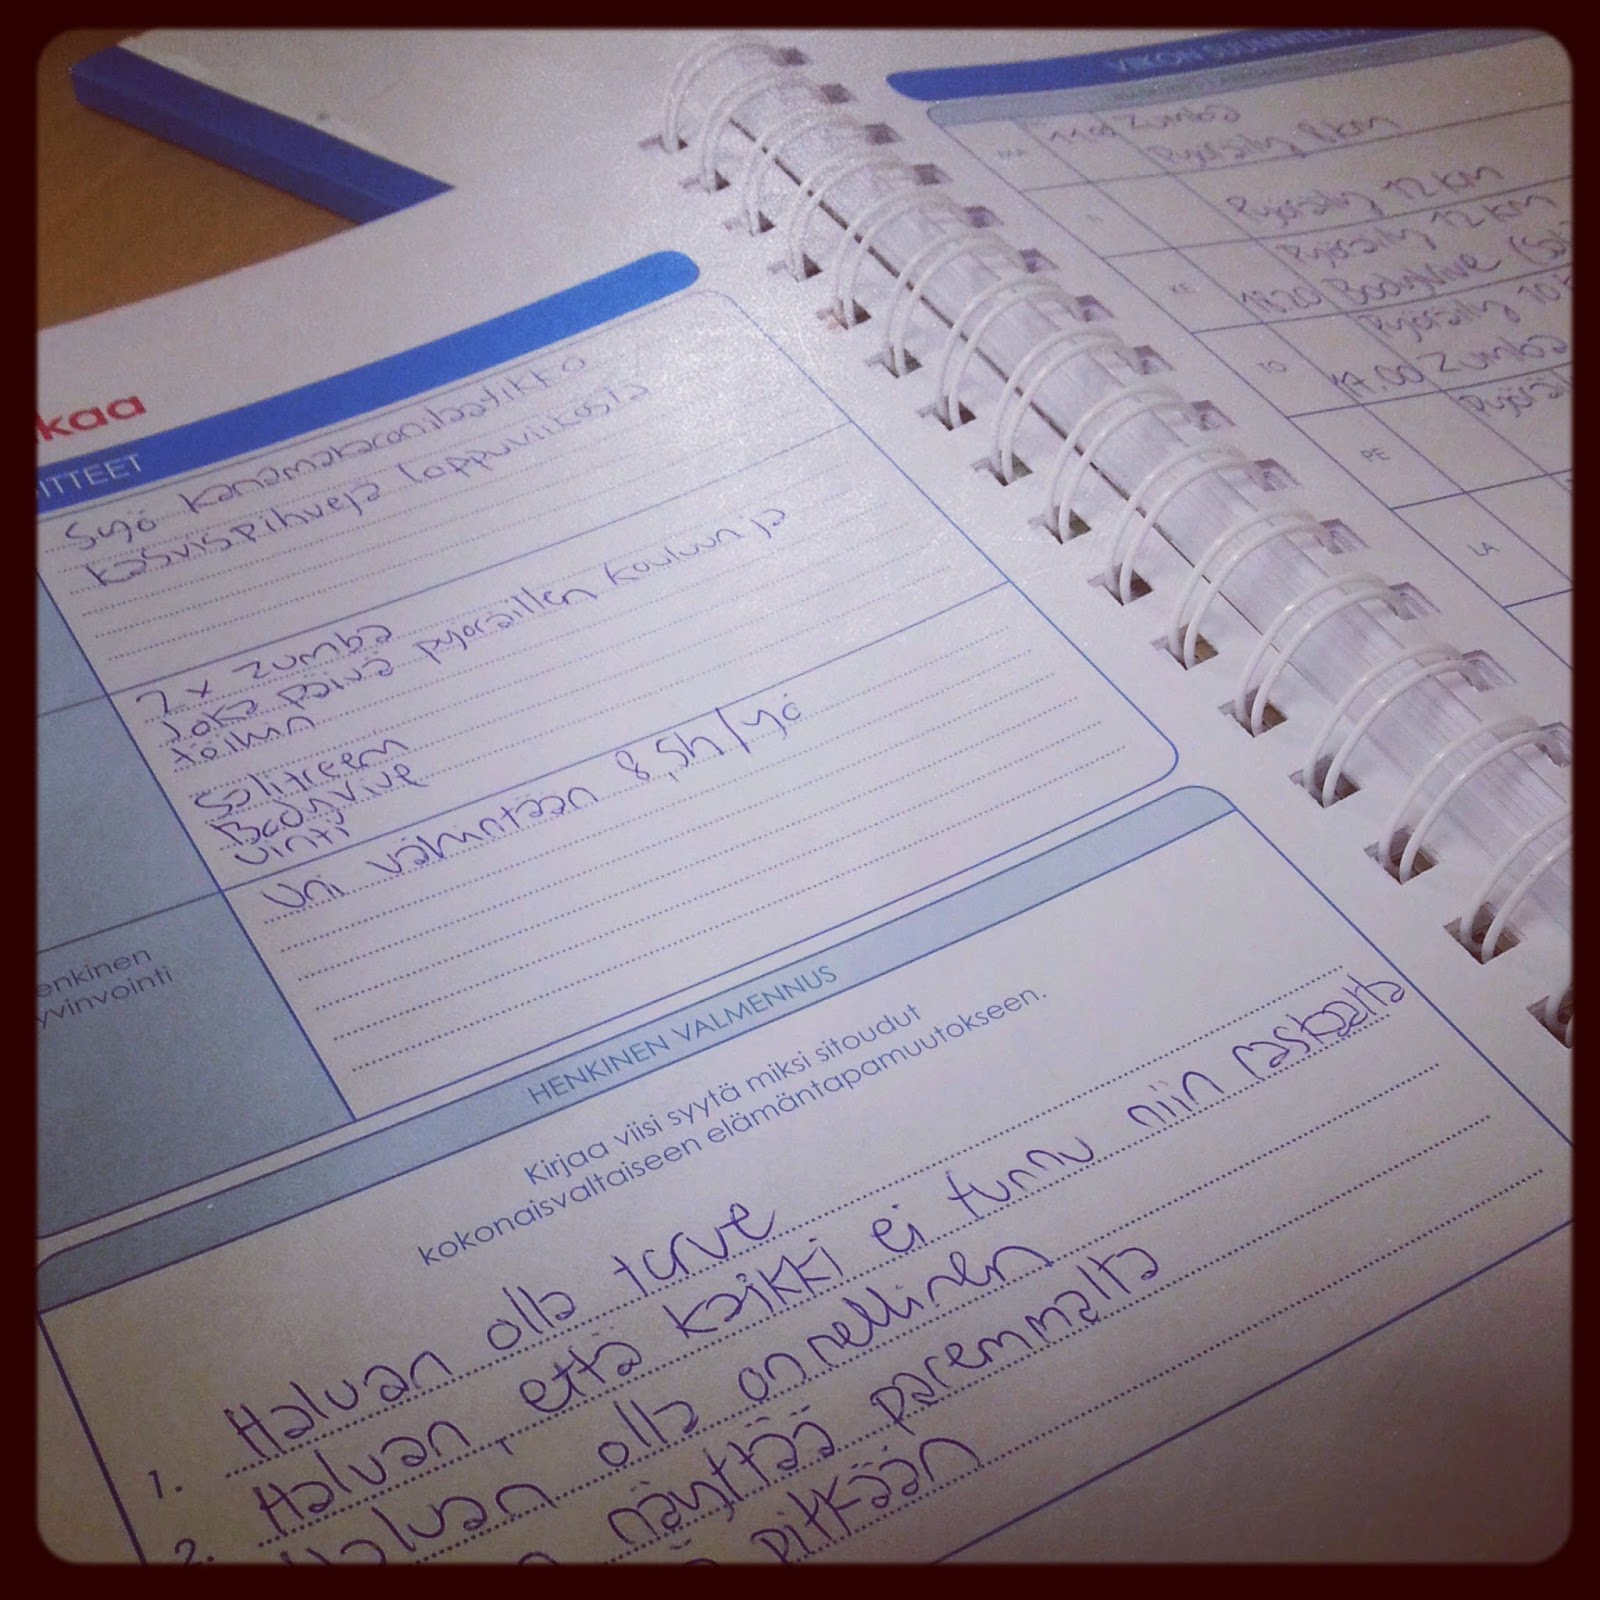 kaa
ITTEET
Syö kanamakaronilaatikko
kasvispihvejä loppuviikosta
2 x zumba
Joka päivä pyöräillen kouluun ja
töihin
Salitreeni
Bodyvive
vinti
enkinen
yvinvointi
Uni vähintään 8,5h/yö
HENKINEN VALMENNUS
Kirjaa viisi syytä miksi sitoudut
kokonaisvaltaiseen elämäntapamuutokseen.
1. Haluan olla terve
2. Haluan, että kaikki ei tunnu niin raskaalta
Haluan olla onnellinen
näyttää paremmalta
pitkään
VIIKON
Zumba
Pyöräily 8km
Pyöräily 12 km
Pyöräily 12 km
KE 18.20 Bodyvive
Pyöräily 10
TO 17.00 Zumba
Pyöräil
PE
LA